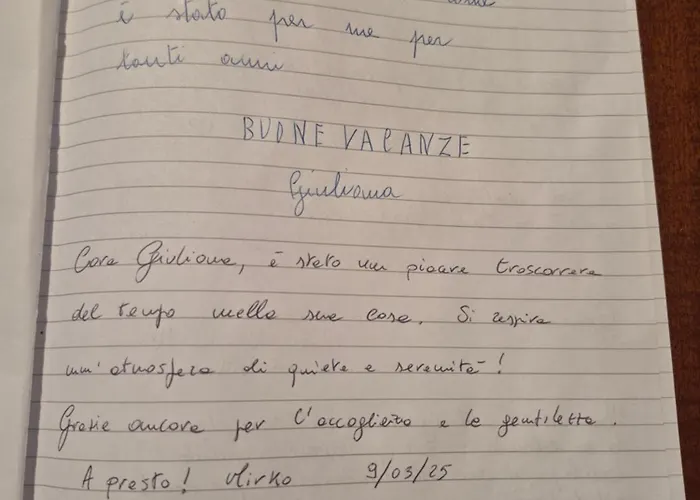 è stato per me per
tanti anni
BUONE VACANZE
Giuliana
Cara Giuliana, è stato un piacere trascorrere
del tempo nella sua casa. Si respira
un'atmosfera di quiete e serenità!
Grazie ancora per l'accoglienza e la gentilezza.
A presto! Mirko 9/03/25